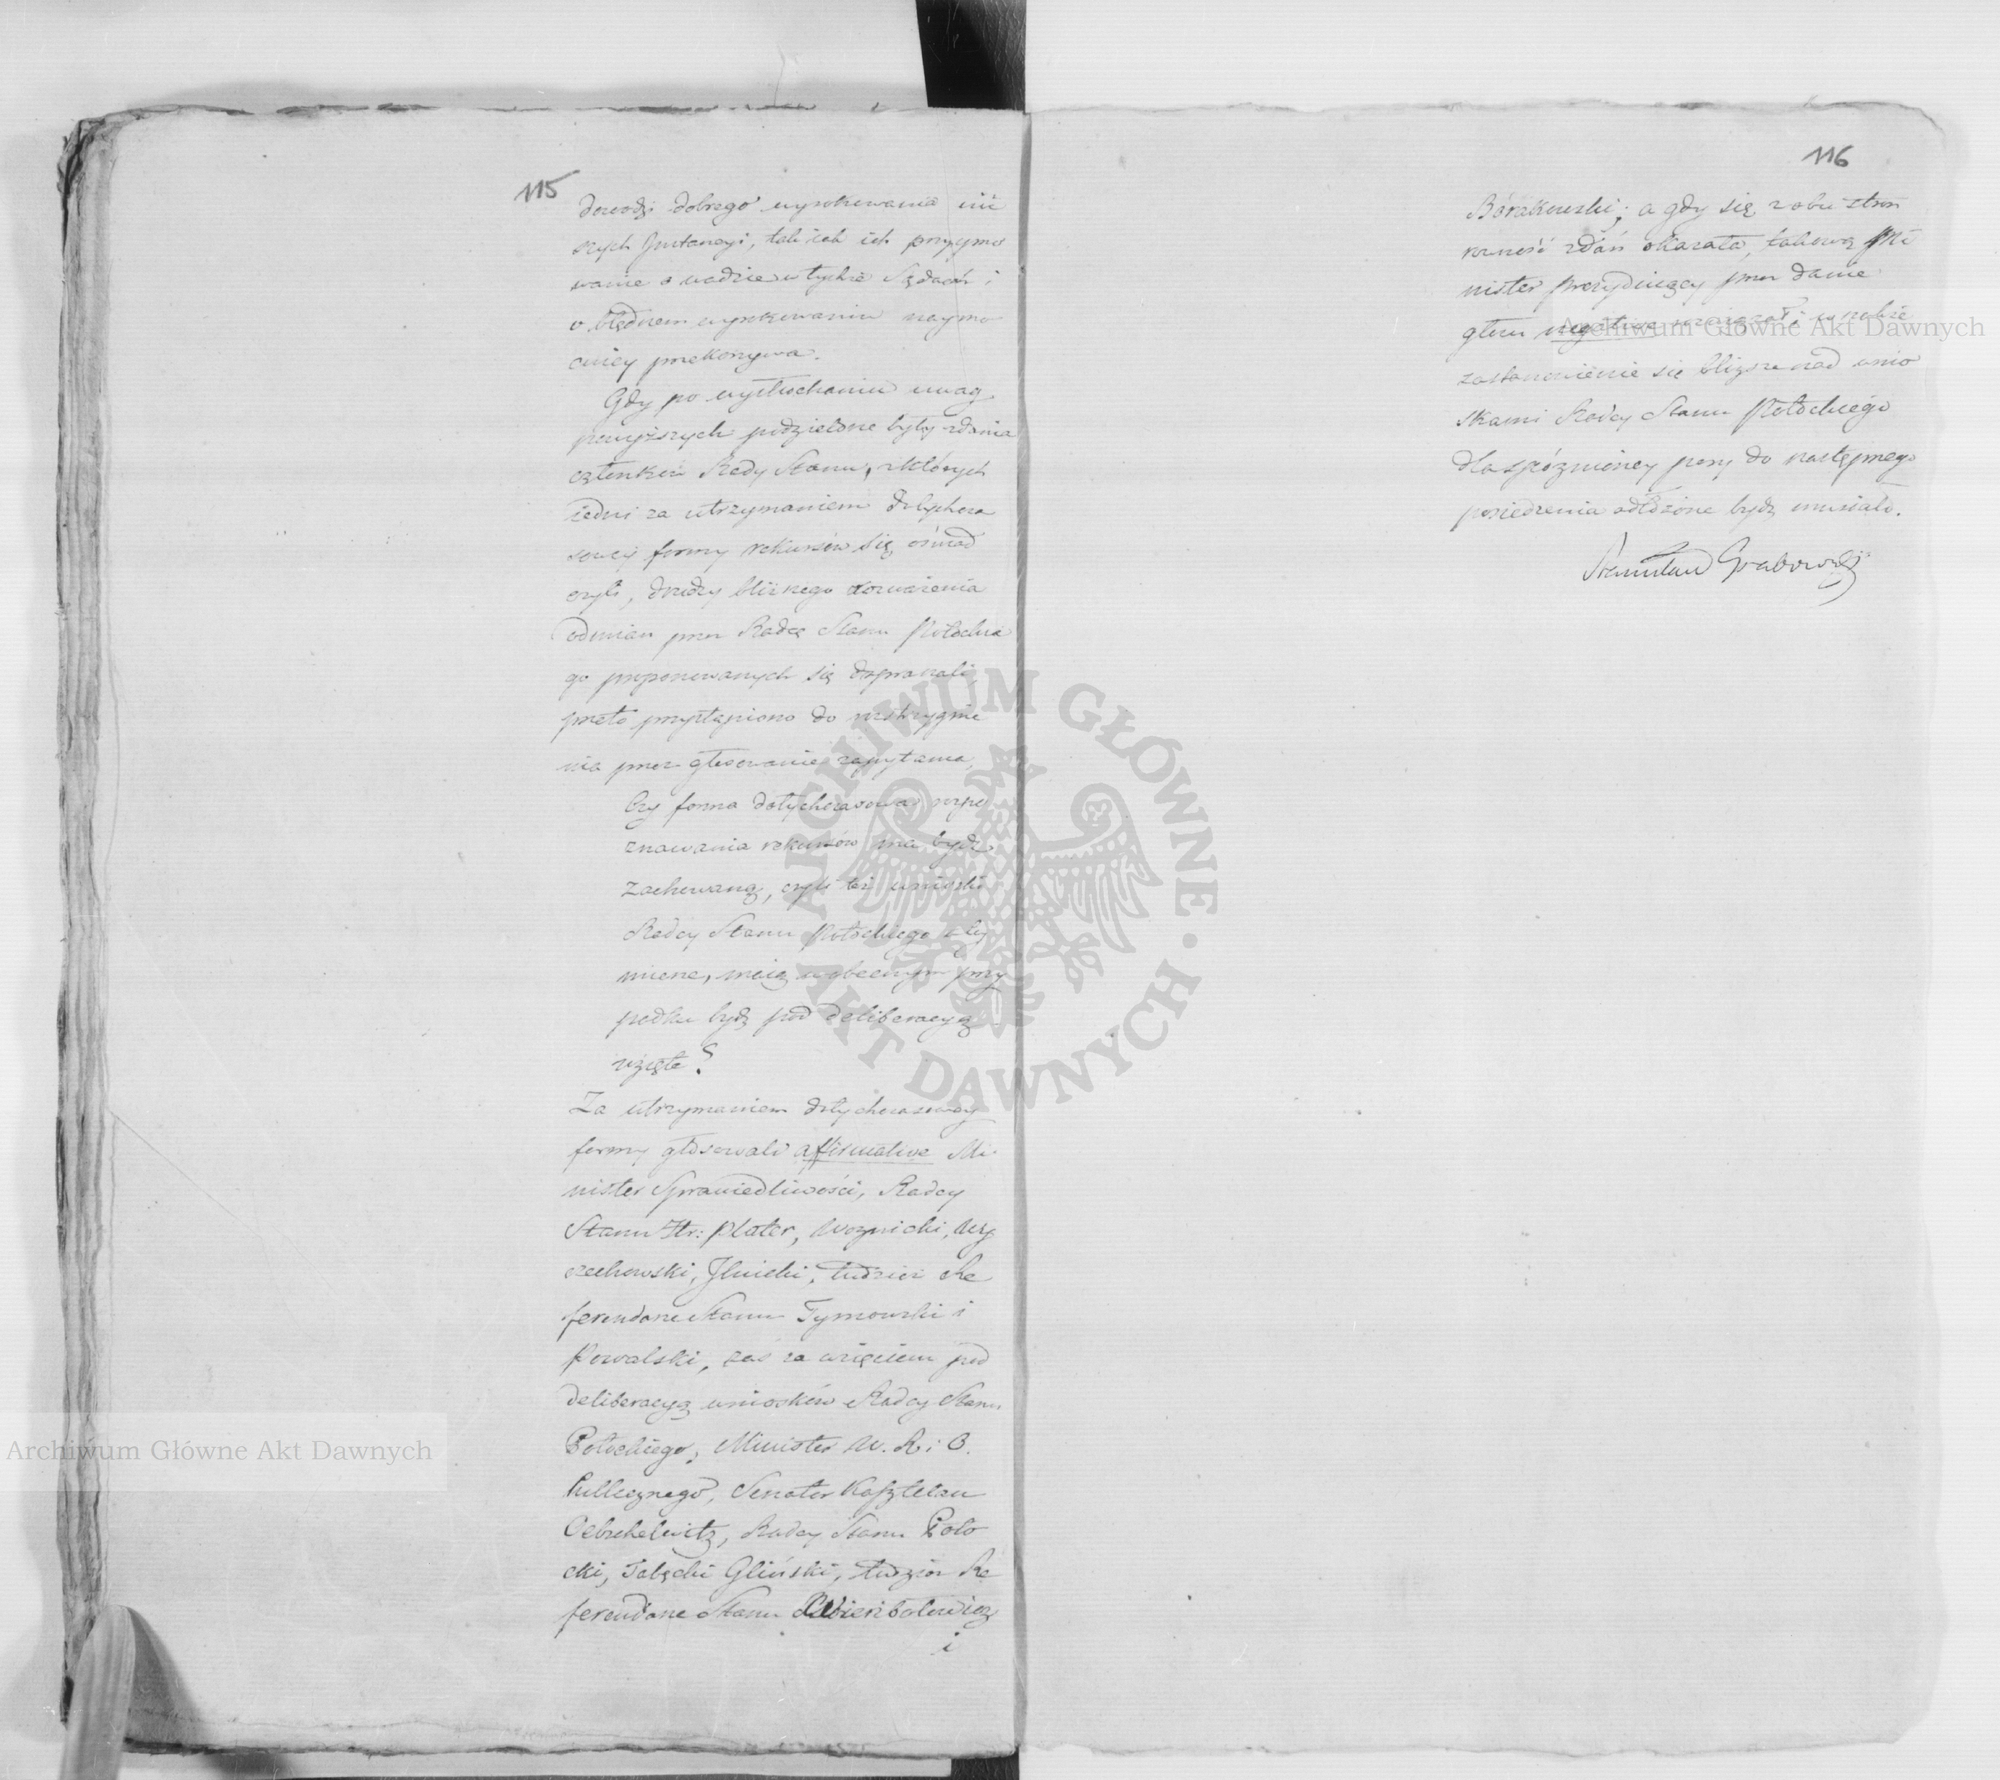 115
dowodzi dobrego wyrokowania niż
szych Instancyi, tak iak ich przyymo
wanie o wadzie w tychże Sądach i
o błędnem wyrokowaniu naymo
cniey przekonywa.
Gdy po wysłuchaniu uwag
powyższych podzielone były zdania
członków Rady Stanu, z których
iedni za utrzymaniem dotychcza
sowey formy rekursów się oświad
czyli, drudzy bliższego rozważenia
odmian przez Radcę Stanu Potockie
go proponowanych się dopraszali,
przeto przystąpiono do rozstrzygnie
nia przez głosowanie zapytania,
Czy forma dotychczasowa rozpo
znawania rekursów ma bydź
zachowaną, czyli też wnioski
Radcy Stanu Potockiego
mione, maią w obecnym przy
padku bydź pod deliberacyą
wzięte?
Za utrzymaniem dotychczasowey
formy głosowali affirmative Mi
nister Sprawiedliwości, Radcy
Stanu Hr: Plater, Woznicki, Wy
czechowski, Jlnicki, tudzież Re
ferendarze Stanu Tymowski i
Kowalski, zaś za wzięciem pod
deliberacyą wniosków Radcy Stanu
Potockiego, Minister W. R. i O.
Publicznego, Senator Kasztelan
Oebschelwitz, Radcy Stanu Poto
cki, Załęcki Gliński, tudzież Re
ferendarze Stanu
i
116
a gdy się z obu stron
równość zdań okazała, takową Mi
nister Prezyduiący przez danie
głosu negative rozwiązał; w
zastanowienie się bliższe nad wnio
skami Radcy Stanu Potockiego
dla spóźnioney pory do następnego
posiedzenia odłożone bydź musiało.
Stanisław Grabowski
Archiwum Główne Akt Dawnych
Archiwum Główne Akt Dawnych
ARCHIWUM GŁÓWNE · AKT DAWNYCH ·